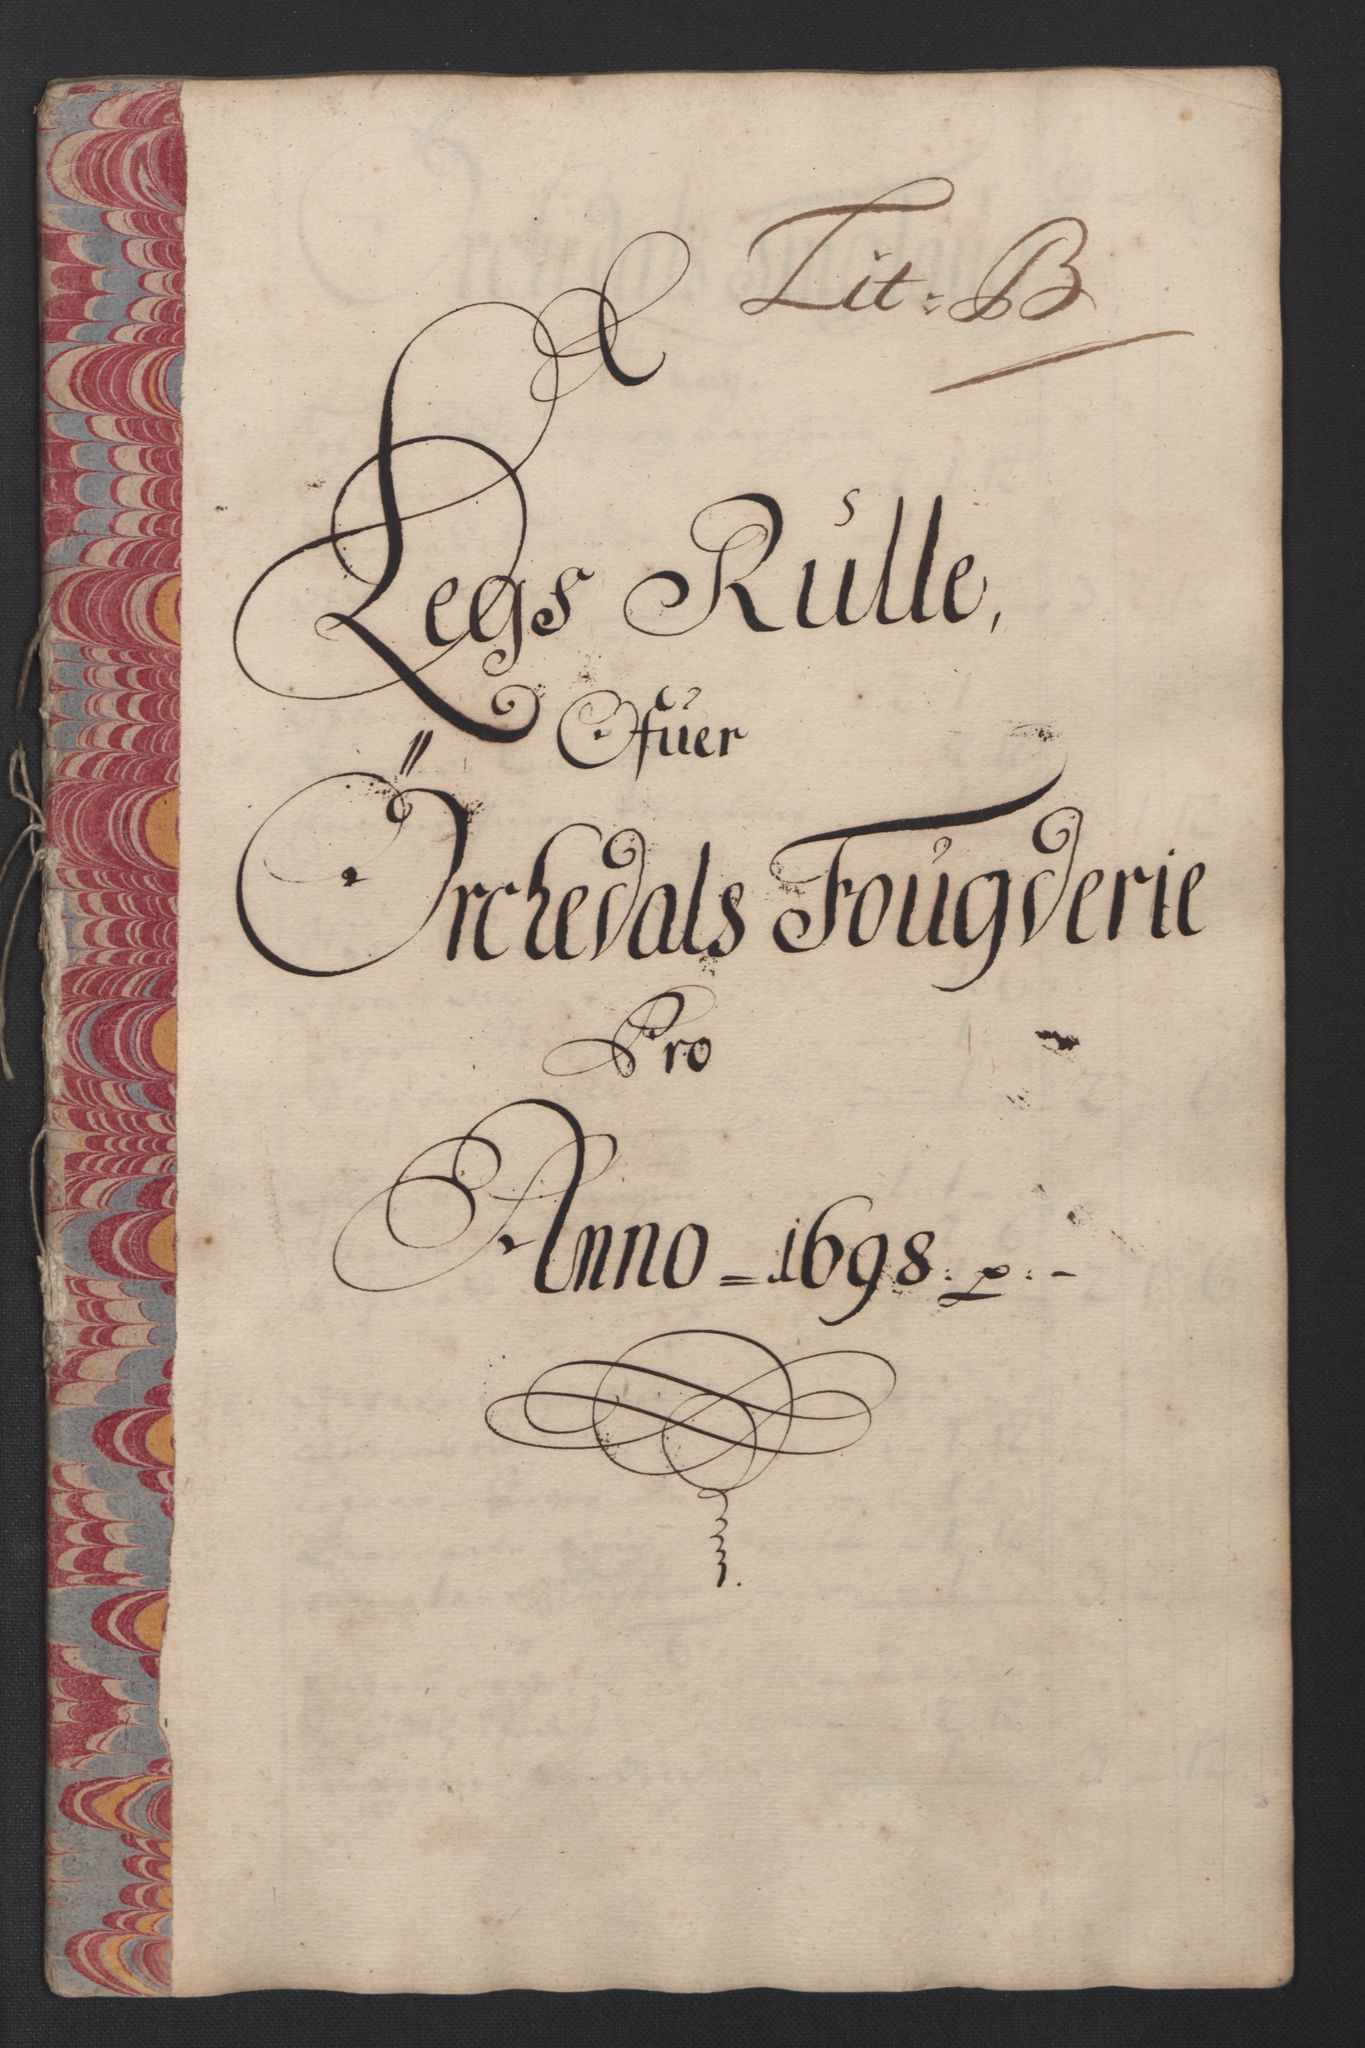 Lit: B
Legs Rulle,
Ofuer
Örchedals Fougderie
Pro
Anno = 1698. p: -